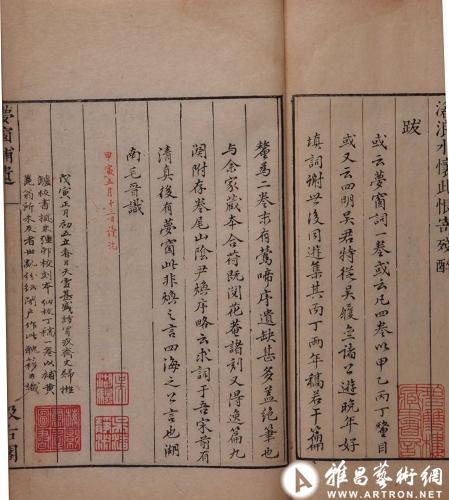 滄浪水懷此恨寄殘醉
跋
或云夢窗詞一卷或云凡四卷以甲乙丙丁釐目
或又云四明吳君特從吳履齋諸公遊晚年好
填詞謝世後同遊集其丙丁兩年稿若干篇
釐為二卷末有鶯啼序遺缺甚多蓋絕筆也
與余家藏本合符既閱花菴諸刻又得逸篇九
闋附存卷尾山陰尹煥序略云求詞于吾宋前有
清真後有夢窗此非煥之言四海之公言也湖
南毛晉識
甲寅五月十三日讀訖
戊寅正月初五立春日天雪甚盛
夢窗補遺 一 汲古閣
雅昌藝術網
www.ARTRON.NET